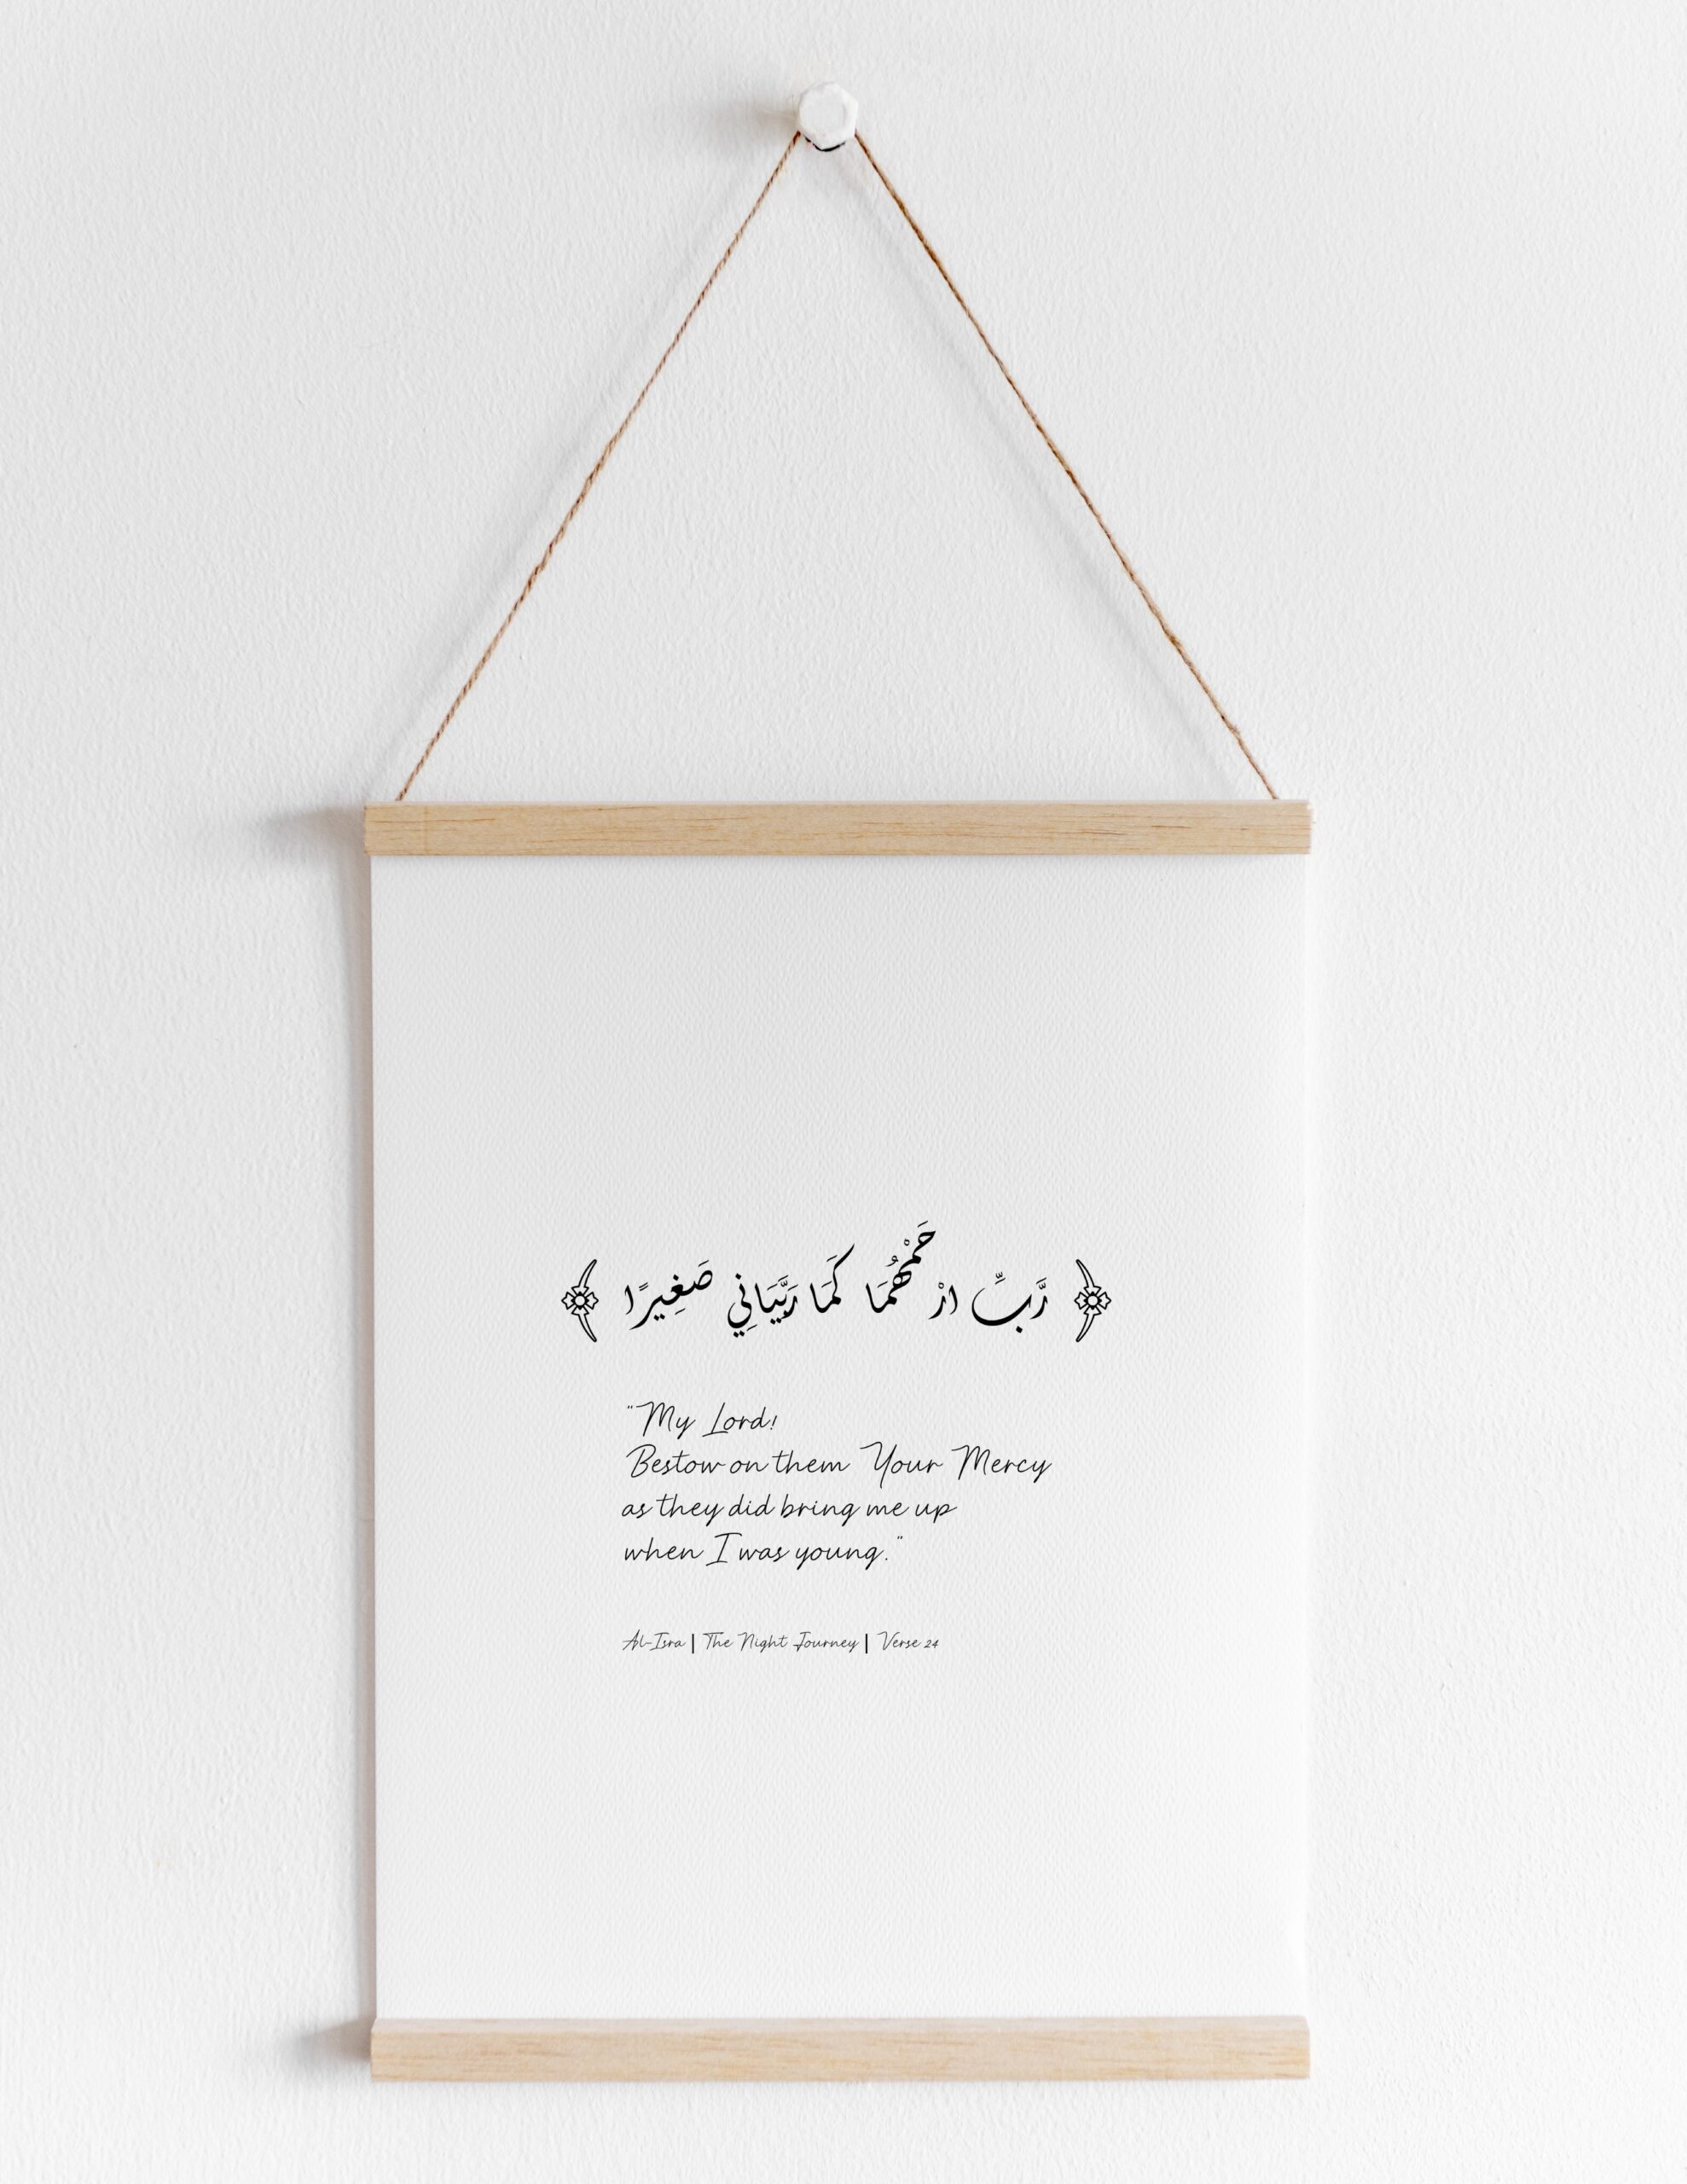 ﴿ رَّبِّ ارْحَمْهُمَا كَمَا رَبَّيَانِي صَغِيرًا ﴾
"My Lord!
Bestow on them Your Mercy
as they did bring me up
when I was young."
Al-Isra | The Night Journey | Verse 24